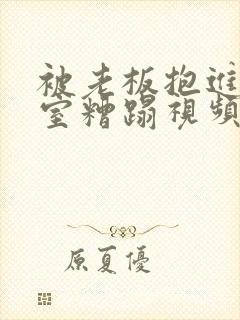 被老板抱进
室糟蹋视频
原夏優